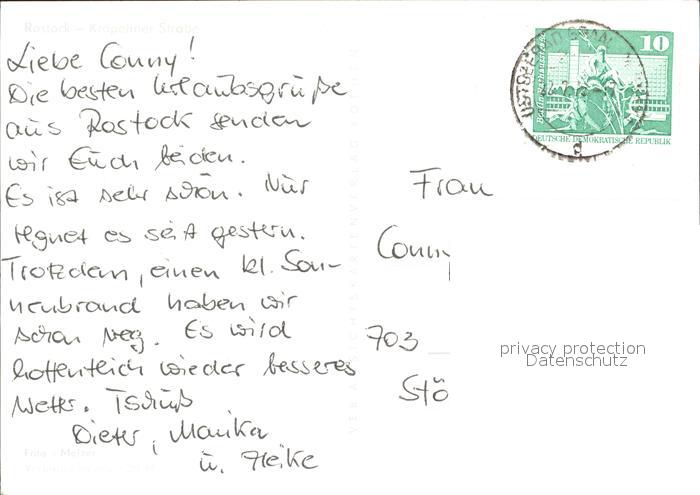 Rostock - Kröpeliner Straße
Liebe Conny!
Die besten Urlaubsgrüße
aus Rostock senden
wir Euch beiden.
Es ist sehr schön. Nur
regnet es seit gestern.
Trotzdem, einen kl. Son-
nenbrand haben wir
schon weg. Es wird
hoffentlich wieder besseres
Wetter. Tschüß
Dieter, Monika
u. Heike
VEB BILD
Berlin
10
DEUTSCHE DEMOKRATISCHE REPUBLIK
Frau
Conny
703
Stö
privacy protection
Datenschutz